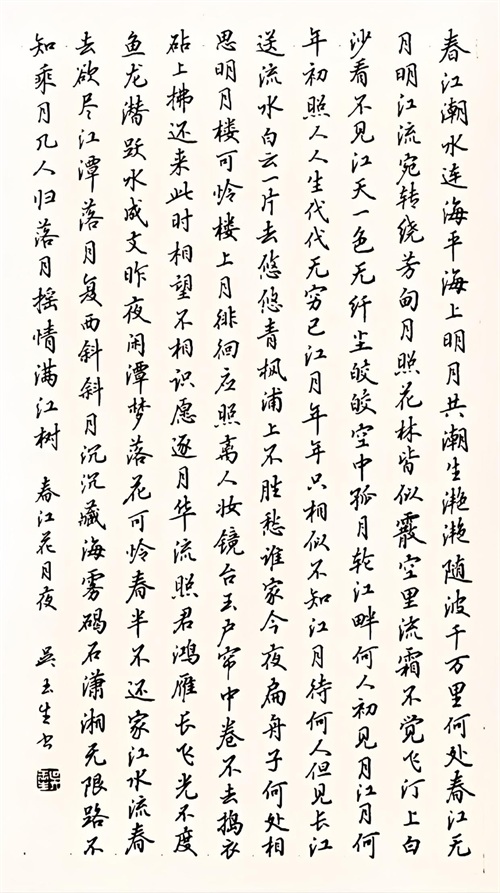 春江潮水连海平海上明月共潮生滟滟随波千万里何处春江无
月明江流宛转绕芳甸月照花林皆似霰空里流霜不觉飞汀上白
沙看不见江天一色无纤尘皎皎空中孤月轮江畔何人初见月江月何
年初照人人生代代无穷已江月年年只相似不知江月待何人但见长江
送流水白云一片去悠悠青枫浦上不胜愁谁家今夜扁舟子何处相
思明月楼可怜楼上月徘徊应照离人妆镜台玉户帘中卷不去捣衣
砧上拂还来此时相望不相识愿逐月华流照君鸿雁长飞光不度
鱼龙潜跃水成文昨夜闲潭梦落花可怜春半不还家江水流春
去欲尽江潭落月复西斜斜月沉沉藏海雾碣石潇湘无限路不
知乘月几人归落月摇情满江树 春江花月夜 吴玉生书